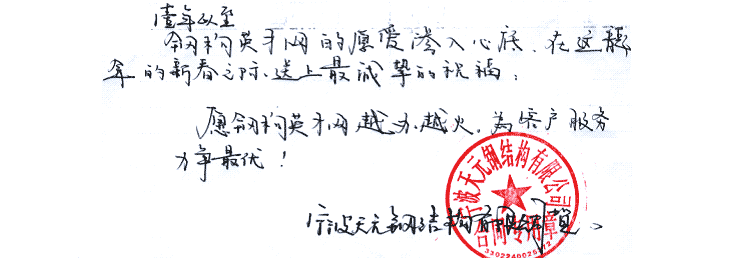 年以至
钢构英才网的愿爱渗入心底、在这龍
年的新春之际、送上最诚挚的祝福:
愿钢构英才网越办越火,為客户服务
力争最优!
宁波天元钢结构有限公司
宁波天元钢结构有限公司
合同专用章